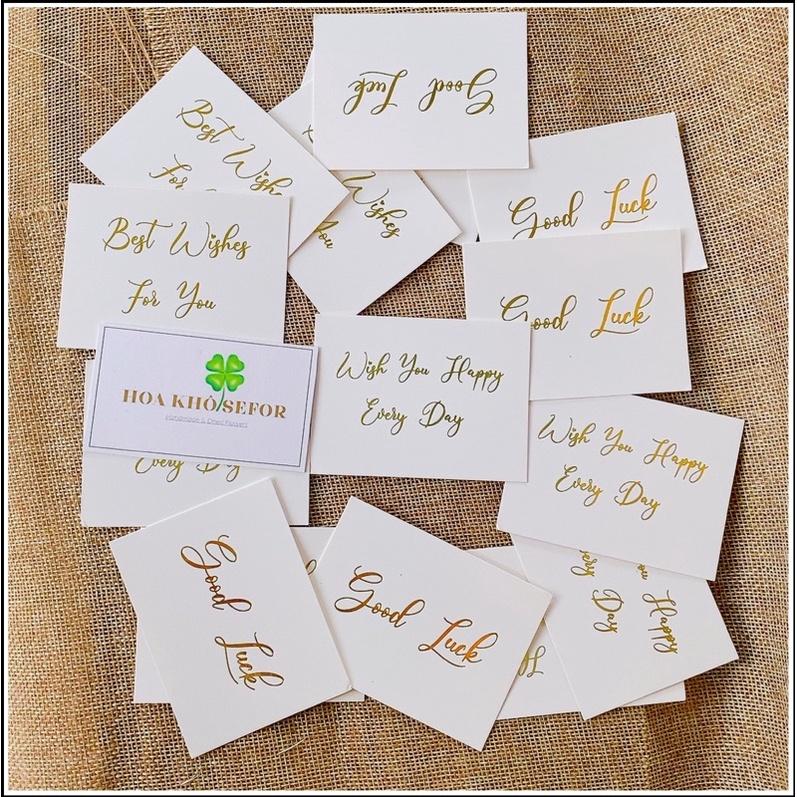 Good Luck
Best Wishes
For
Wishes
You
Good Luck
Best Wishes
For You
Good Luck
Wish You Happy
Every Day
HOA KHÔ SEFOR
Handmade & Dried Flowers
Every Day
Wish You Happy
Every Day
Good Luck
Good Luck
You Happy
Every Day